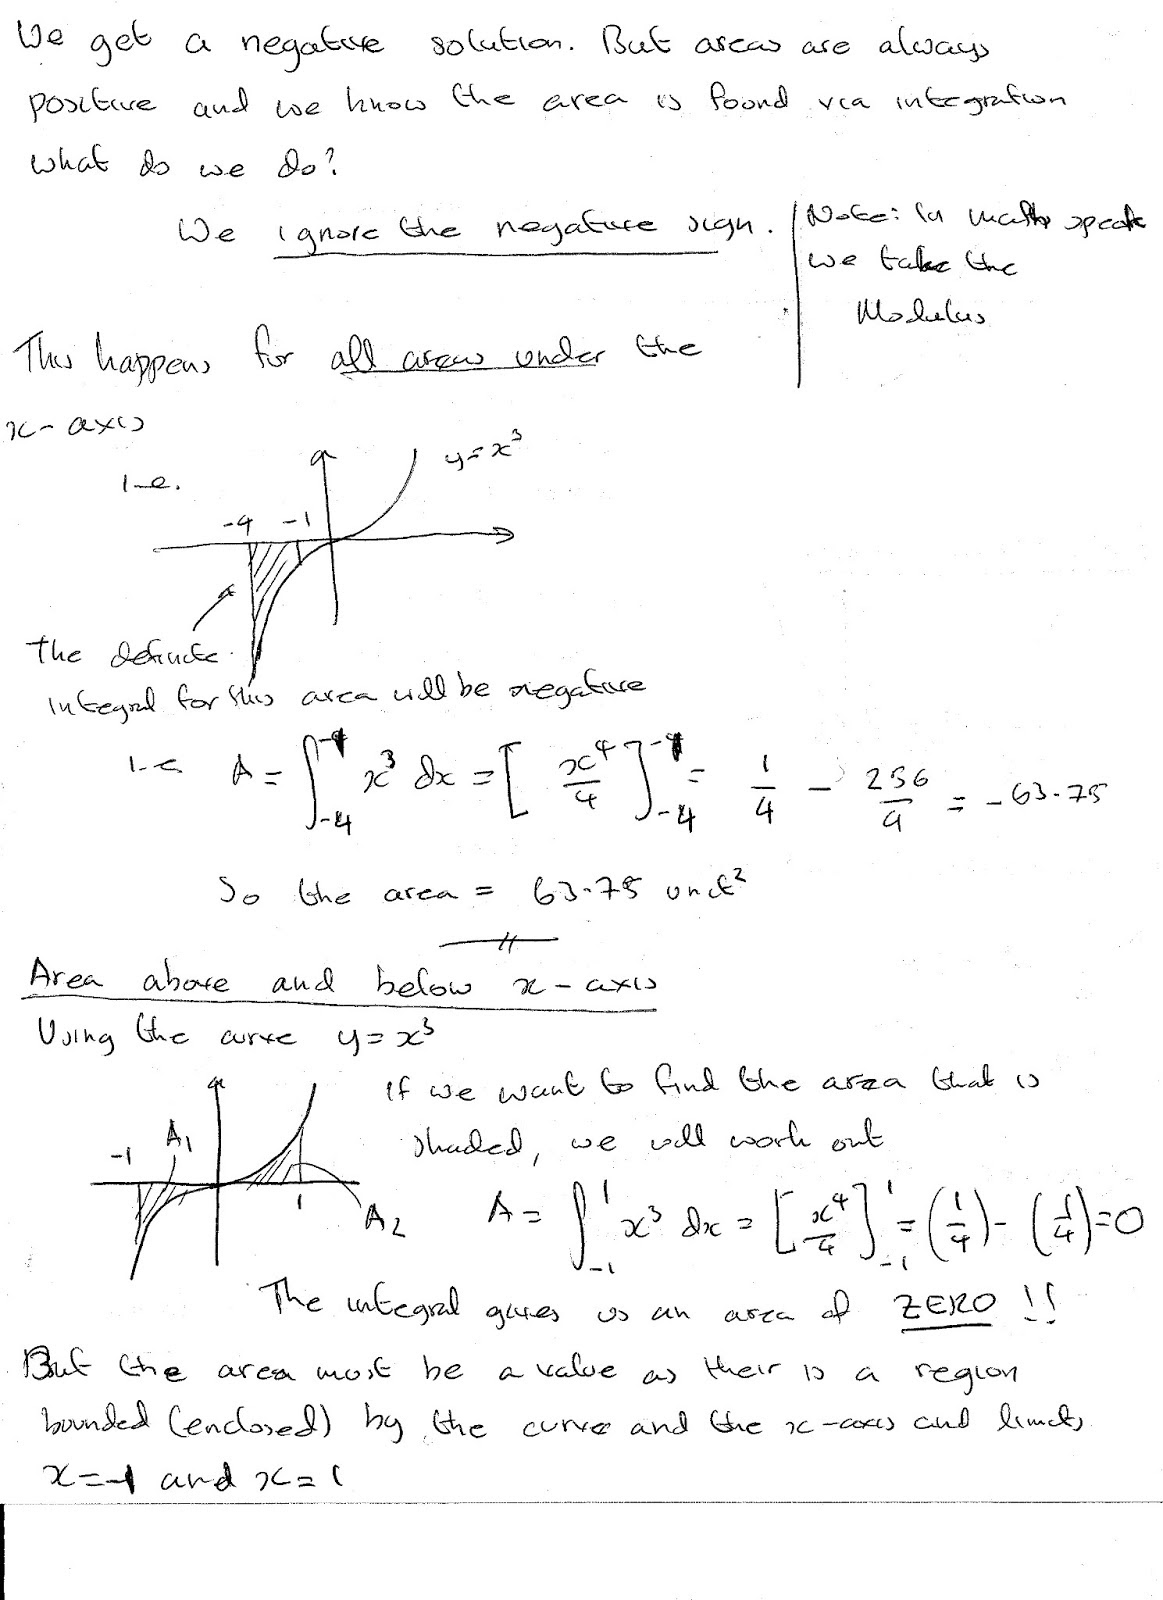 We get a negative solution. But areas are always
positive and we know the area is found via integration
what do we do?
We ignore the negative sign.
Note: In maths speak
we take the
Modulus
This happens for all areas under the
x-axis
i.e.
y=x³
-4 -1
The definite
integral for this area will be negative
i.e A = ∫₋₄⁻¹ x³ dx = [x⁴/4]₋₄⁻¹ = 1/4 - 256/4 = -63.75
So the area = 63.75 unit²
Area above and below x-axis
Using the curve y=x³
If we want to find the area that is
shaded, we will work out
A₁
-1
1
A₂
A = ∫₋₁¹ x³ dx = [x⁴/4]₋₁¹ = (1/4) - (1/4) = 0
The integral gives us an area of ZERO !!
But the area must be a value as their is a region
bounded (enclosed) by the curve and the x-axis and limits
x=-1 and x=1